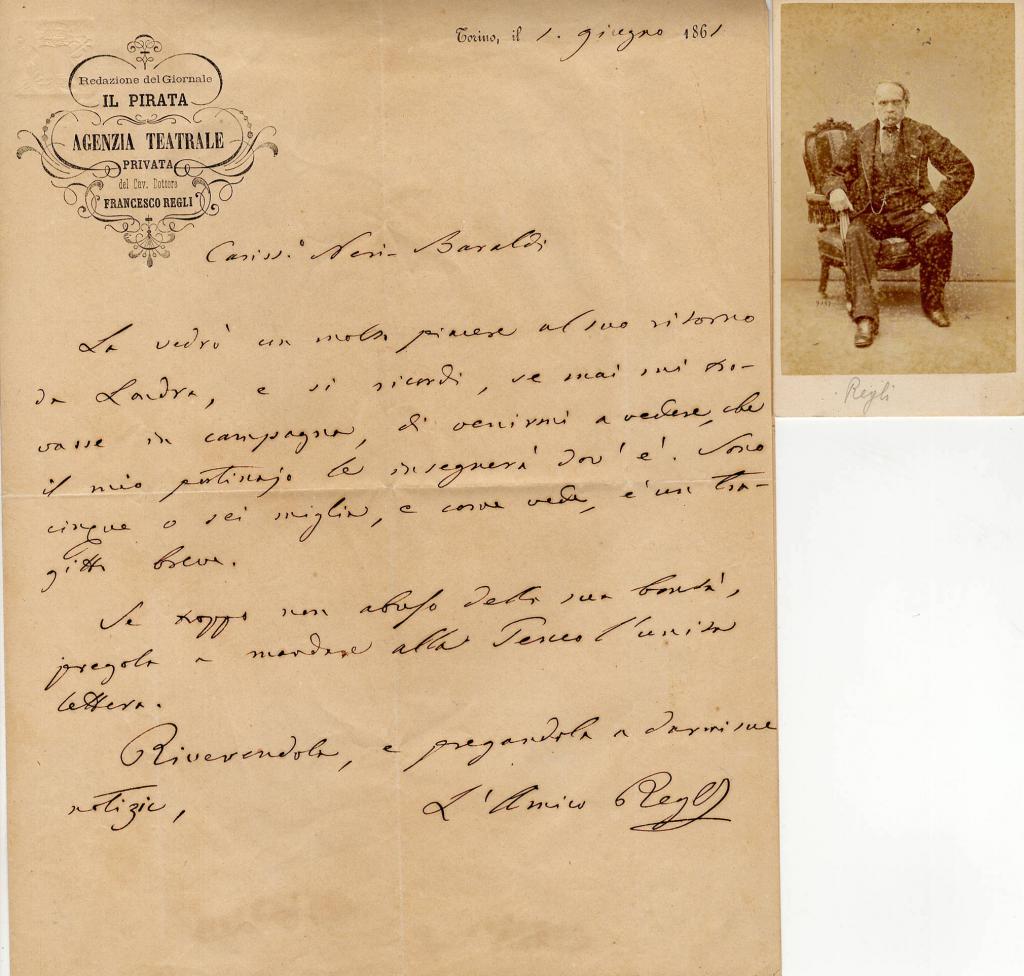 Torino, il 1. giugno 1861
Redazione del Giornale
IL PIRATA
AGENZIA TEATRALE
PRIVATA
del Cav. Dottore
FRANCESCO REGLI
Cariss.o Neri-Baraldi
La vedrò con molto piacere al suo ritorno
da Londra, e si ricordi, se mai mi tro-
vasse in campagna, di venirmi a vedere, che
il mio portinajo le insegnerà dov'è. Sono
cinque o sei miglia, e come vede, è un tra-
gitto breve.
Se troppo non abuso della sua bontà,
pregola a mandare alla l'unita
lettera.
Riverendola, e pregandola a darmi sue
notizie,
L'Amico Regli
Regli